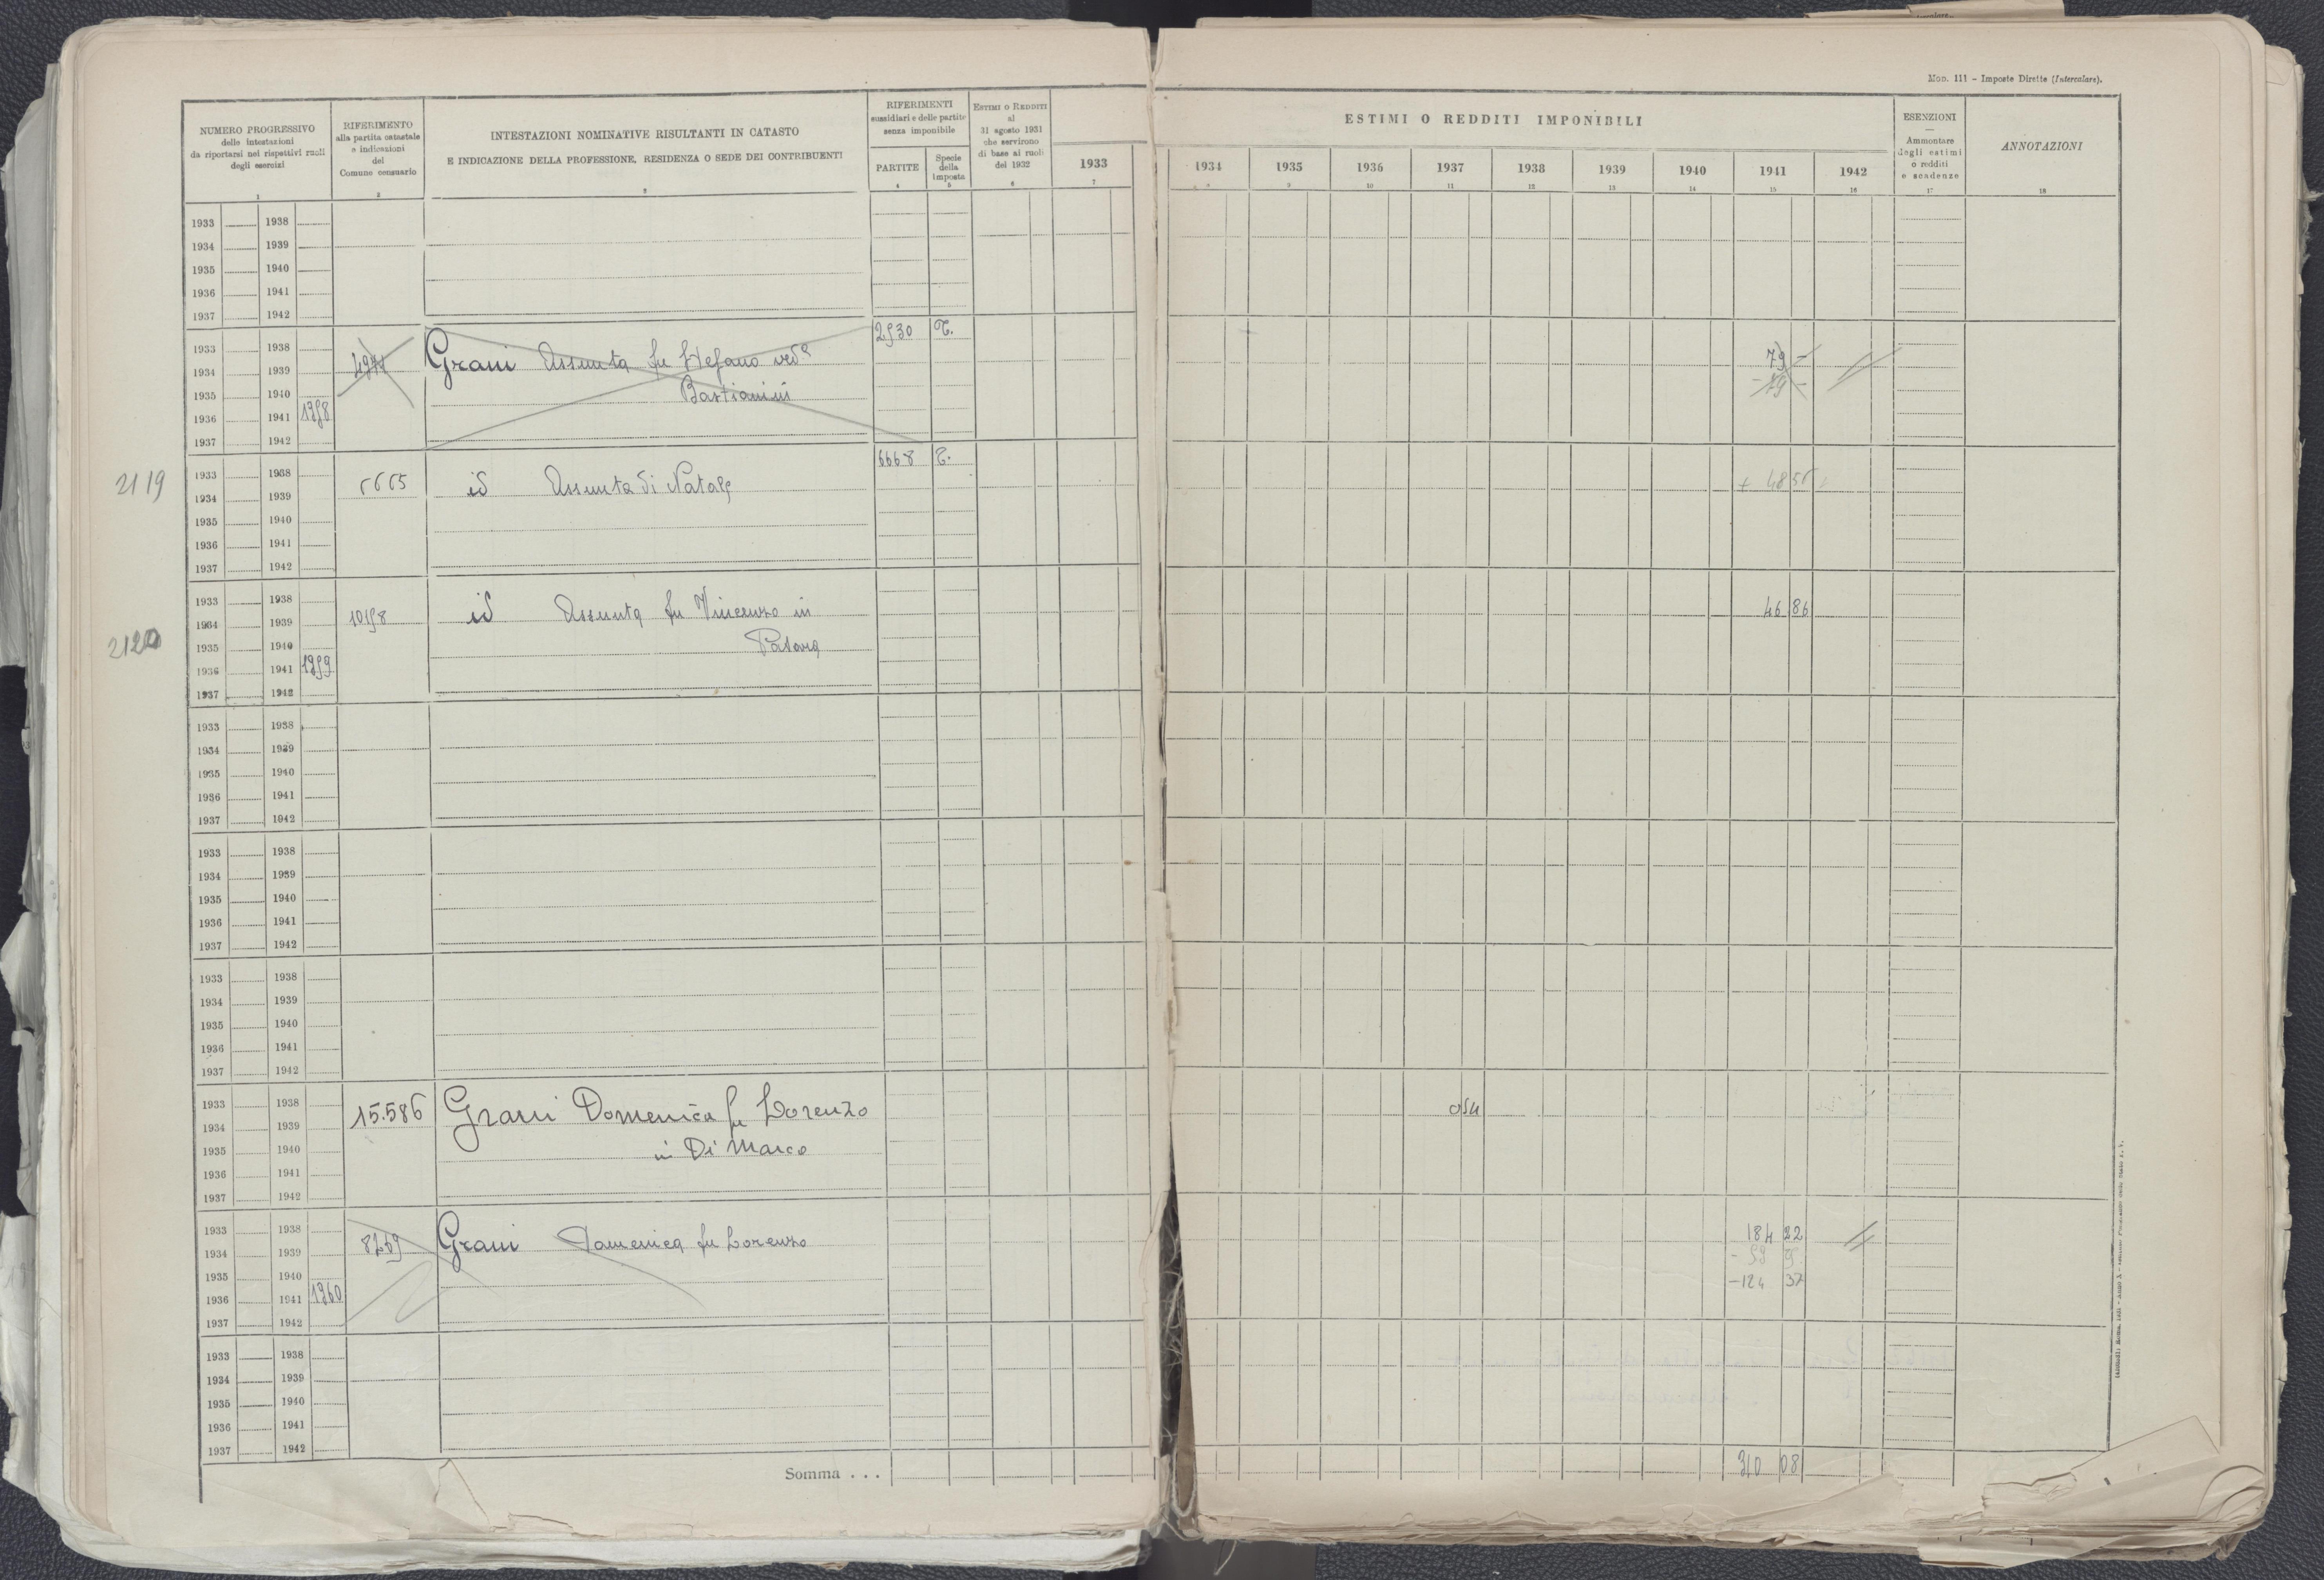 Mod. 111 - Imposte Dirette (Intercalare).
NUMERO PROGRESSIVO
delle intestazioni
da riportarsi nei rispettivi ruoli
degli esercizi
1
RIFERIMENTO
alla partita catastale
e indicazioni
del
Comune censuario
2
INTESTAZIONI NOMINATIVE RISULTANTI IN CATASTO
E INDICAZIONE DELLA PROFESSIONE, RESIDENZA O SEDE DEI CONTRIBUENTI
3
RIFERIMENTI
sussidiari e delle partite
senza imponibile
PARTITE
4
Specie
della
imposta
5
ESTIMI O REDDITI
al
31 agosto 1931
che servirono
di base ai ruoli
del 1932
6
ESTIMI O REDDITI IMPONIBILI
1933 1934 1935 1936 1937 1938 1939 1940 1941 1942
7 8 9 10 11 12 13 14 15 16
ESENZIONI
—
Ammontare
degli estimi
o redditi
e scadenze
17
ANNOTAZIONI
18
1933 1938
1934 1939
1935 1940
1936 1941
1937 1942
1933 1938 2530 T.
1934 1939 Grani Assunta fu Stefano ved.a 79 -
1935 1940 Bastianini - 79 -
1936 1941 1358
1937 1942
2119
1933 1938 6668 T.
1934 1939 6665 id Assunta di Natale + 48 56
1935 1940
1936 1941
1937 1942
2120
1933 1938
1934 1939 10158 id Assunta fu Vincenzo in 46 86
1935 1940
1936 1941 1359
1937 1942
1933 1938
1934 1939
1935 1940
1936 1941
1937 1942
1933 1938
1934 1939
1935 1940
1936 1941
1937 1942
1933 1938
1934 1939
1935 1940
1936 1941
1937 1942
1933 1938
1934 1939 15.586 Grani Domenica fu Lorenzo 0 54
1935 1940 in Di Marco
1936 1941
1937 1942
1933 1938
1934 1939 8269 Grani Domenica fu Lorenzo 184 22
1935 1940 - 124 37
1936 1941 1360
1937 1942
1933 1938
1934 1939
1935 1940
1936 1941
1937 1942
Somma . . . 310 08